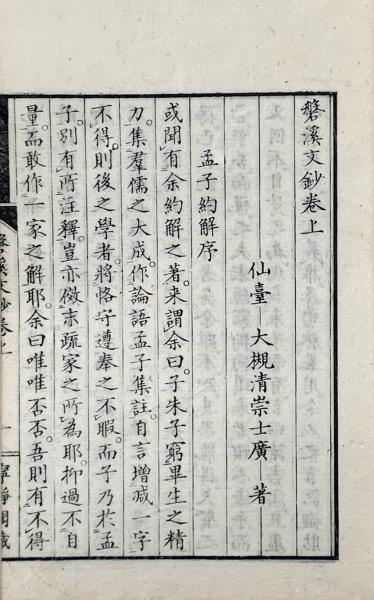 磐溪文鈔卷上
仙臺 大槻清崇士廣 著
孟子約解序
或聞有余約解之著。来謂余曰。子朱子窮畢生之精
力。集羣儒之大成。作論語孟子集註。自言增減一字
不得。則後之學者。將恪守遵奉之不暇。而子乃於孟
子。別有所注釋。豈亦倣末疏家之所爲耶。抑過不自
量。而敢作一家之解耶。余曰唯唯否否。吾則有不得
磐溪文鈔卷上
一
寧靜閣藏